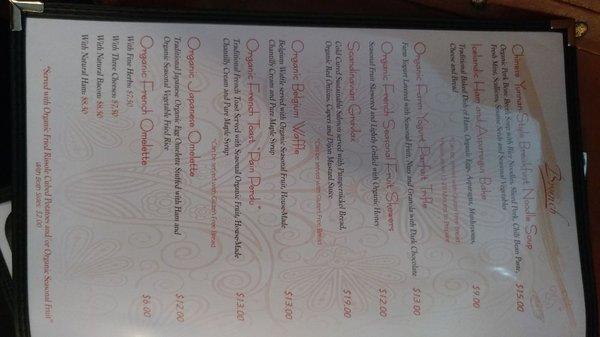 Brunch
China Yunnan Style Breakfast Noodle Soup
Organic Pork Bone Broth Soup with Rice Noodles, Sliced Pork, Chili Bean Paste, $15.00
Fresh Mint, Scallions, Sesame Seeds and Seasonal Vegetables
Icelandic Ham and Asparagus Bake
Traditional Baked Dish of Ham, Organic Eggs, Asparagus, Mushrooms, $9.00
Cheese and Bread
Organic Farm Yogurt Parfait Trifle $13.00
Farm Yogurt Layered with Seasonal Fruit, Nuts and Granola with Dark Chocolate
Organic French Seasonal Fruit Skewers $12.00
Seasonal Fruit Skewered and Lightly Grilled with Organic Honey
Scandinavian Gravlax $19.00
Cold Cured Sustainable Salmon served with Pumpernickel Bread,
Organic Red Onions, Capers and Dijon Mustard Sauce
*Can be served with Gluten Free Bread
Organic Belgium Waffle $13.00
Belgium Waffle served with Organic Seasonal Fruit, House-Made
Chantilly Cream and Pure Maple Syrup
Organic French Toast "Pain Perdu" $13.00
Traditional French Toast Served with Seasonal Organic Fruit, House-Made
Chantilly Cream and Pure Maple Syrup
*Can be served with Gluten Free Bread
Organic Japanese Omelette $12.00
Traditional Japanese Organic Egg Omelette Stuffed with Ham and
Organic Seasonal Vegetable Fried Rice
Organic French Omelette $6.00
With Fine Herbs $7.50
With Three Cheeses $7.50
With Natural Bacon: $8.50
With Natural Ham: $8.50
*Served with Organic Fried Rissole Cubed Potatoes and/or Organic Seasonal Fruit*
With both sides: $2.00